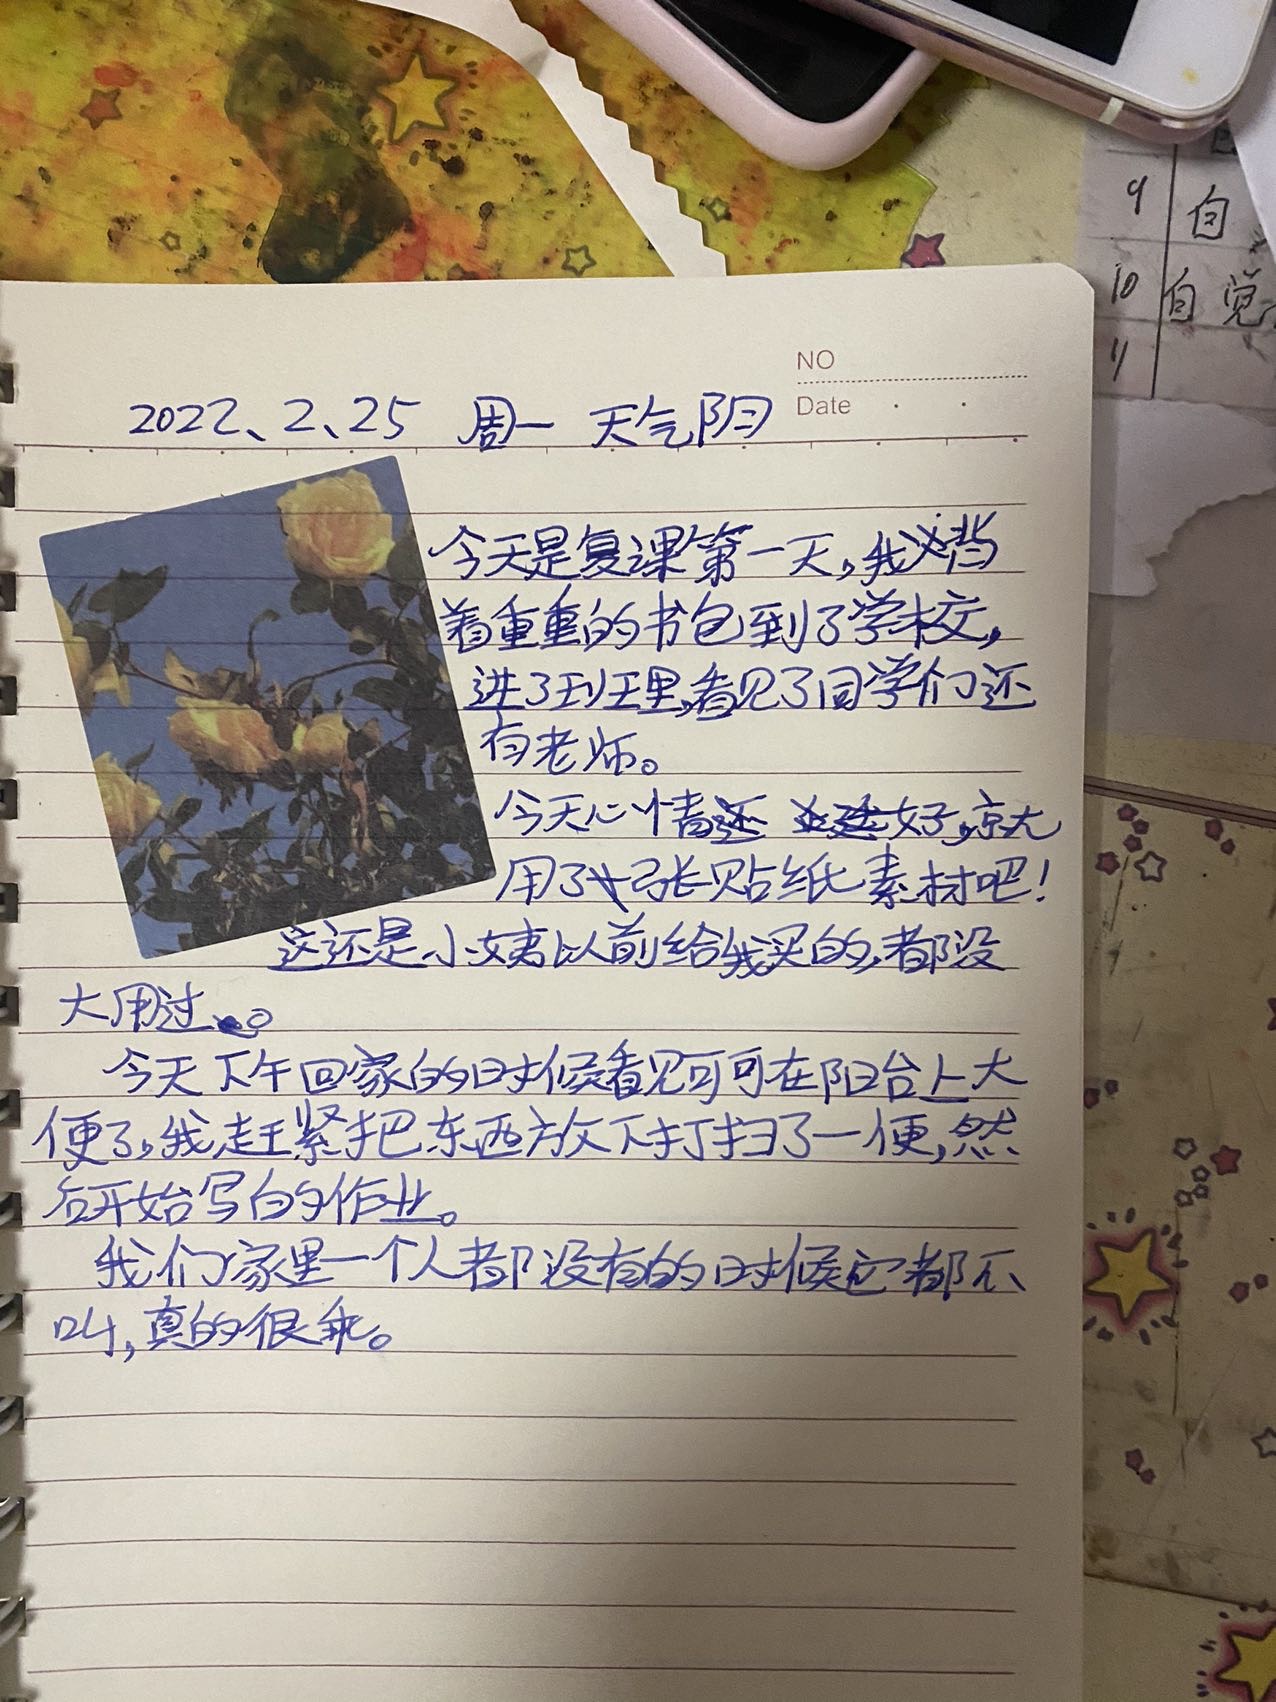 9 自
10 自觉
11
NO
Date
2022、2、25 周一 天气阴
今天是复课第一天,我背
着重重的书包到了学校,
进了班里,看见了同学们还
有老师。
今天心情还好,就
用了张贴纸素材吧!
这还是小姨以前给我买的,都没
大用过。
今天下午回家的时候看见可可在阳台上大
便了,我赶紧把东西放下打扫了一便,然
后开始写的作业。
我们家里一个人都没有的时候它都不
叫,真的很乖。